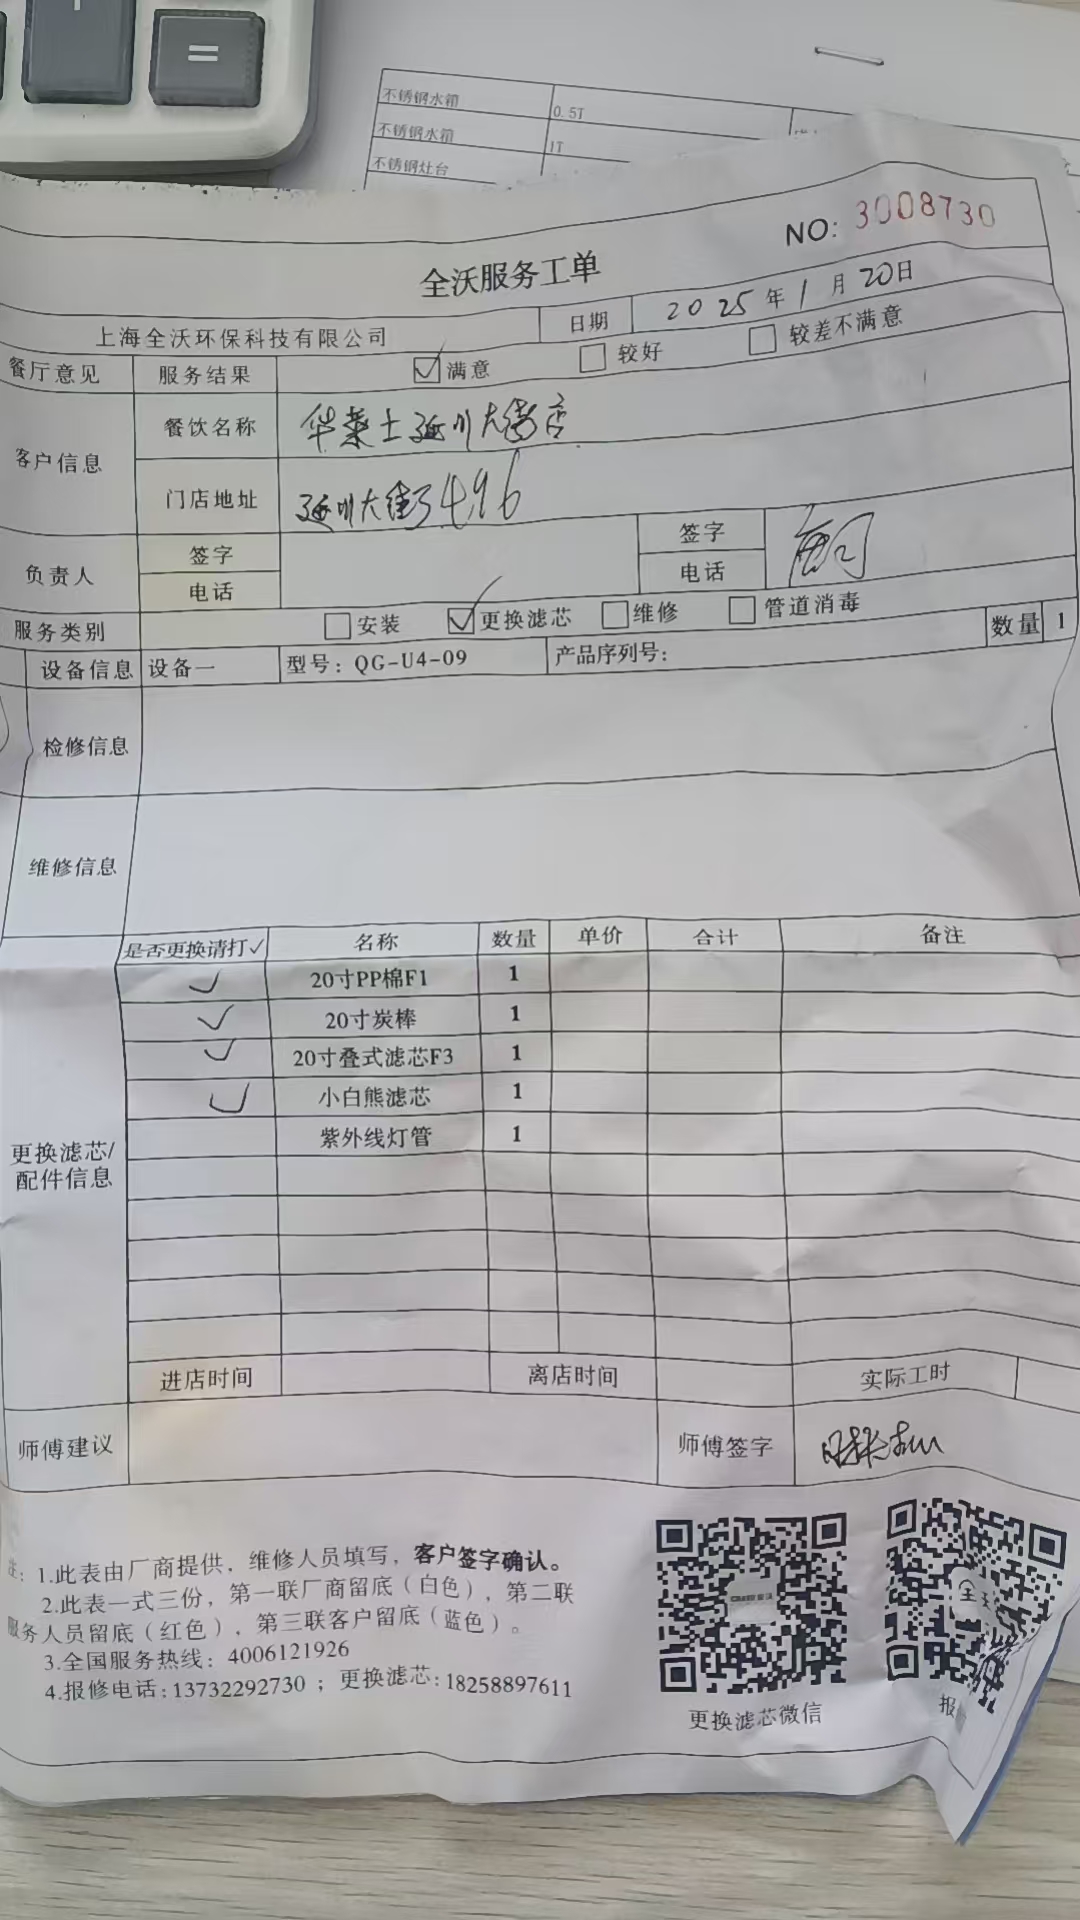 =
不锈钢水箱 0.5T
不锈钢水箱 1T
不锈钢灶台
NO: 3008730
全沃服务工单
上海全沃环保科技有限公司 日期 2025年1月20日
餐厅意见 服务结果 ☑满意 □较好 □较差不满意
客户信息 餐饮名称 华莱士延川大街店
门店地址 延川大街496
负责人 签字 签字
电话 电话
服务类别 □安装 ☑更换滤芯 □维修 □管道消毒
设备信息 设备一 型号：QG-U4-09 产品序列号： 数量 1
检修信息
维修信息
是否更换请打✓ 名称 数量 单价 合计 备注
✓ 20寸PP棉F1 1
✓ 20寸炭棒 1
✓ 20寸叠式滤芯F3 1
✓ 小白熊滤芯 1
紫外线灯管 1
更换滤芯/
配件信息
进店时间 离店时间 实际工时
师傅建议 师傅签字
注：1.此表由厂商提供，维修人员填写，客户签字确认。
2.此表一式三份，第一联厂商留底（白色），第二联
服务人员留底（红色），第三联客户留底（蓝色）。
3.全国服务热线：4006121926
4.报修电话：13732292730 ；更换滤芯：18258897611
更换滤芯微信
报